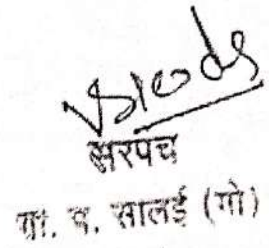 सरपंच
ग्रा. पं. सालई (गो)